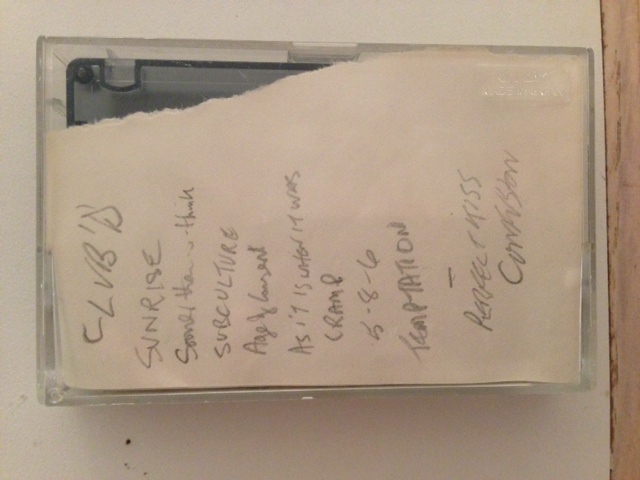 CLUB 'A'
SUNRISE
Sooner than u think
SUBCULTURE
Age of Consent
AS IT IS WHEN IT WAS
CRAMP
5-8-6
TEMPTATION
—
PERFECT KISS
CONFUSION